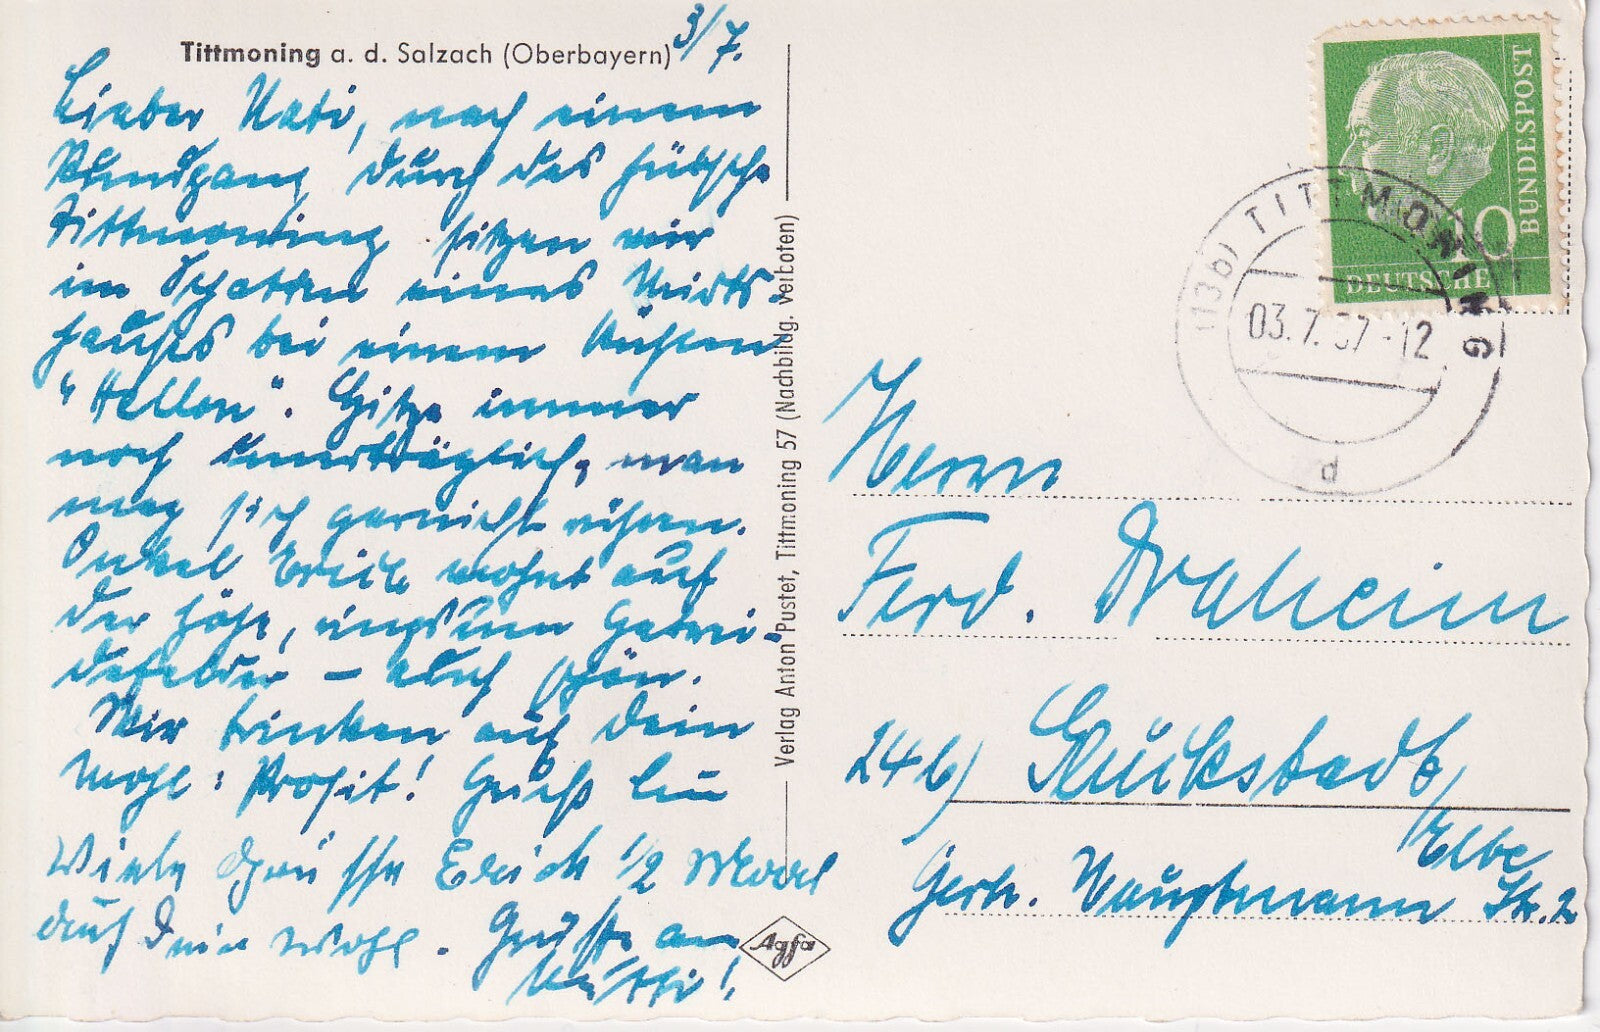 Tittmoning a. d. Salzach (Oberbayern)
3/7.
Lieber Vati, nach einem
Rundgang durch das hübsche
Tittmoning sitzen wir
im Schatten eines Wirts-
hauses bei einem kühlen
"Hellen". Hitze immer
noch unerträglich, man
mag sich garnicht rühren.
Onkel Erich wohnt auf
der Höhe, ringsum Getrei-
defelder – auch schön.
Wir trinken auf Dein
Wohl: Prosit! Gruß
Viele Grüsse Erich 1/2 Mool
auf Dein Wohl. Grüsse an
Mutti!
Verlag Anton Pustet, Tittmoning 57 (Nachbildg. verboten)
Agfa
BUNDESPOST
10
DEUTSCHE
(13b) TITTMONING
03.7.57-12
d
Herrn
Ferd. Draheim
24b) Glückstadt/
Elbe
Gerh. Hauptmann Str. 2